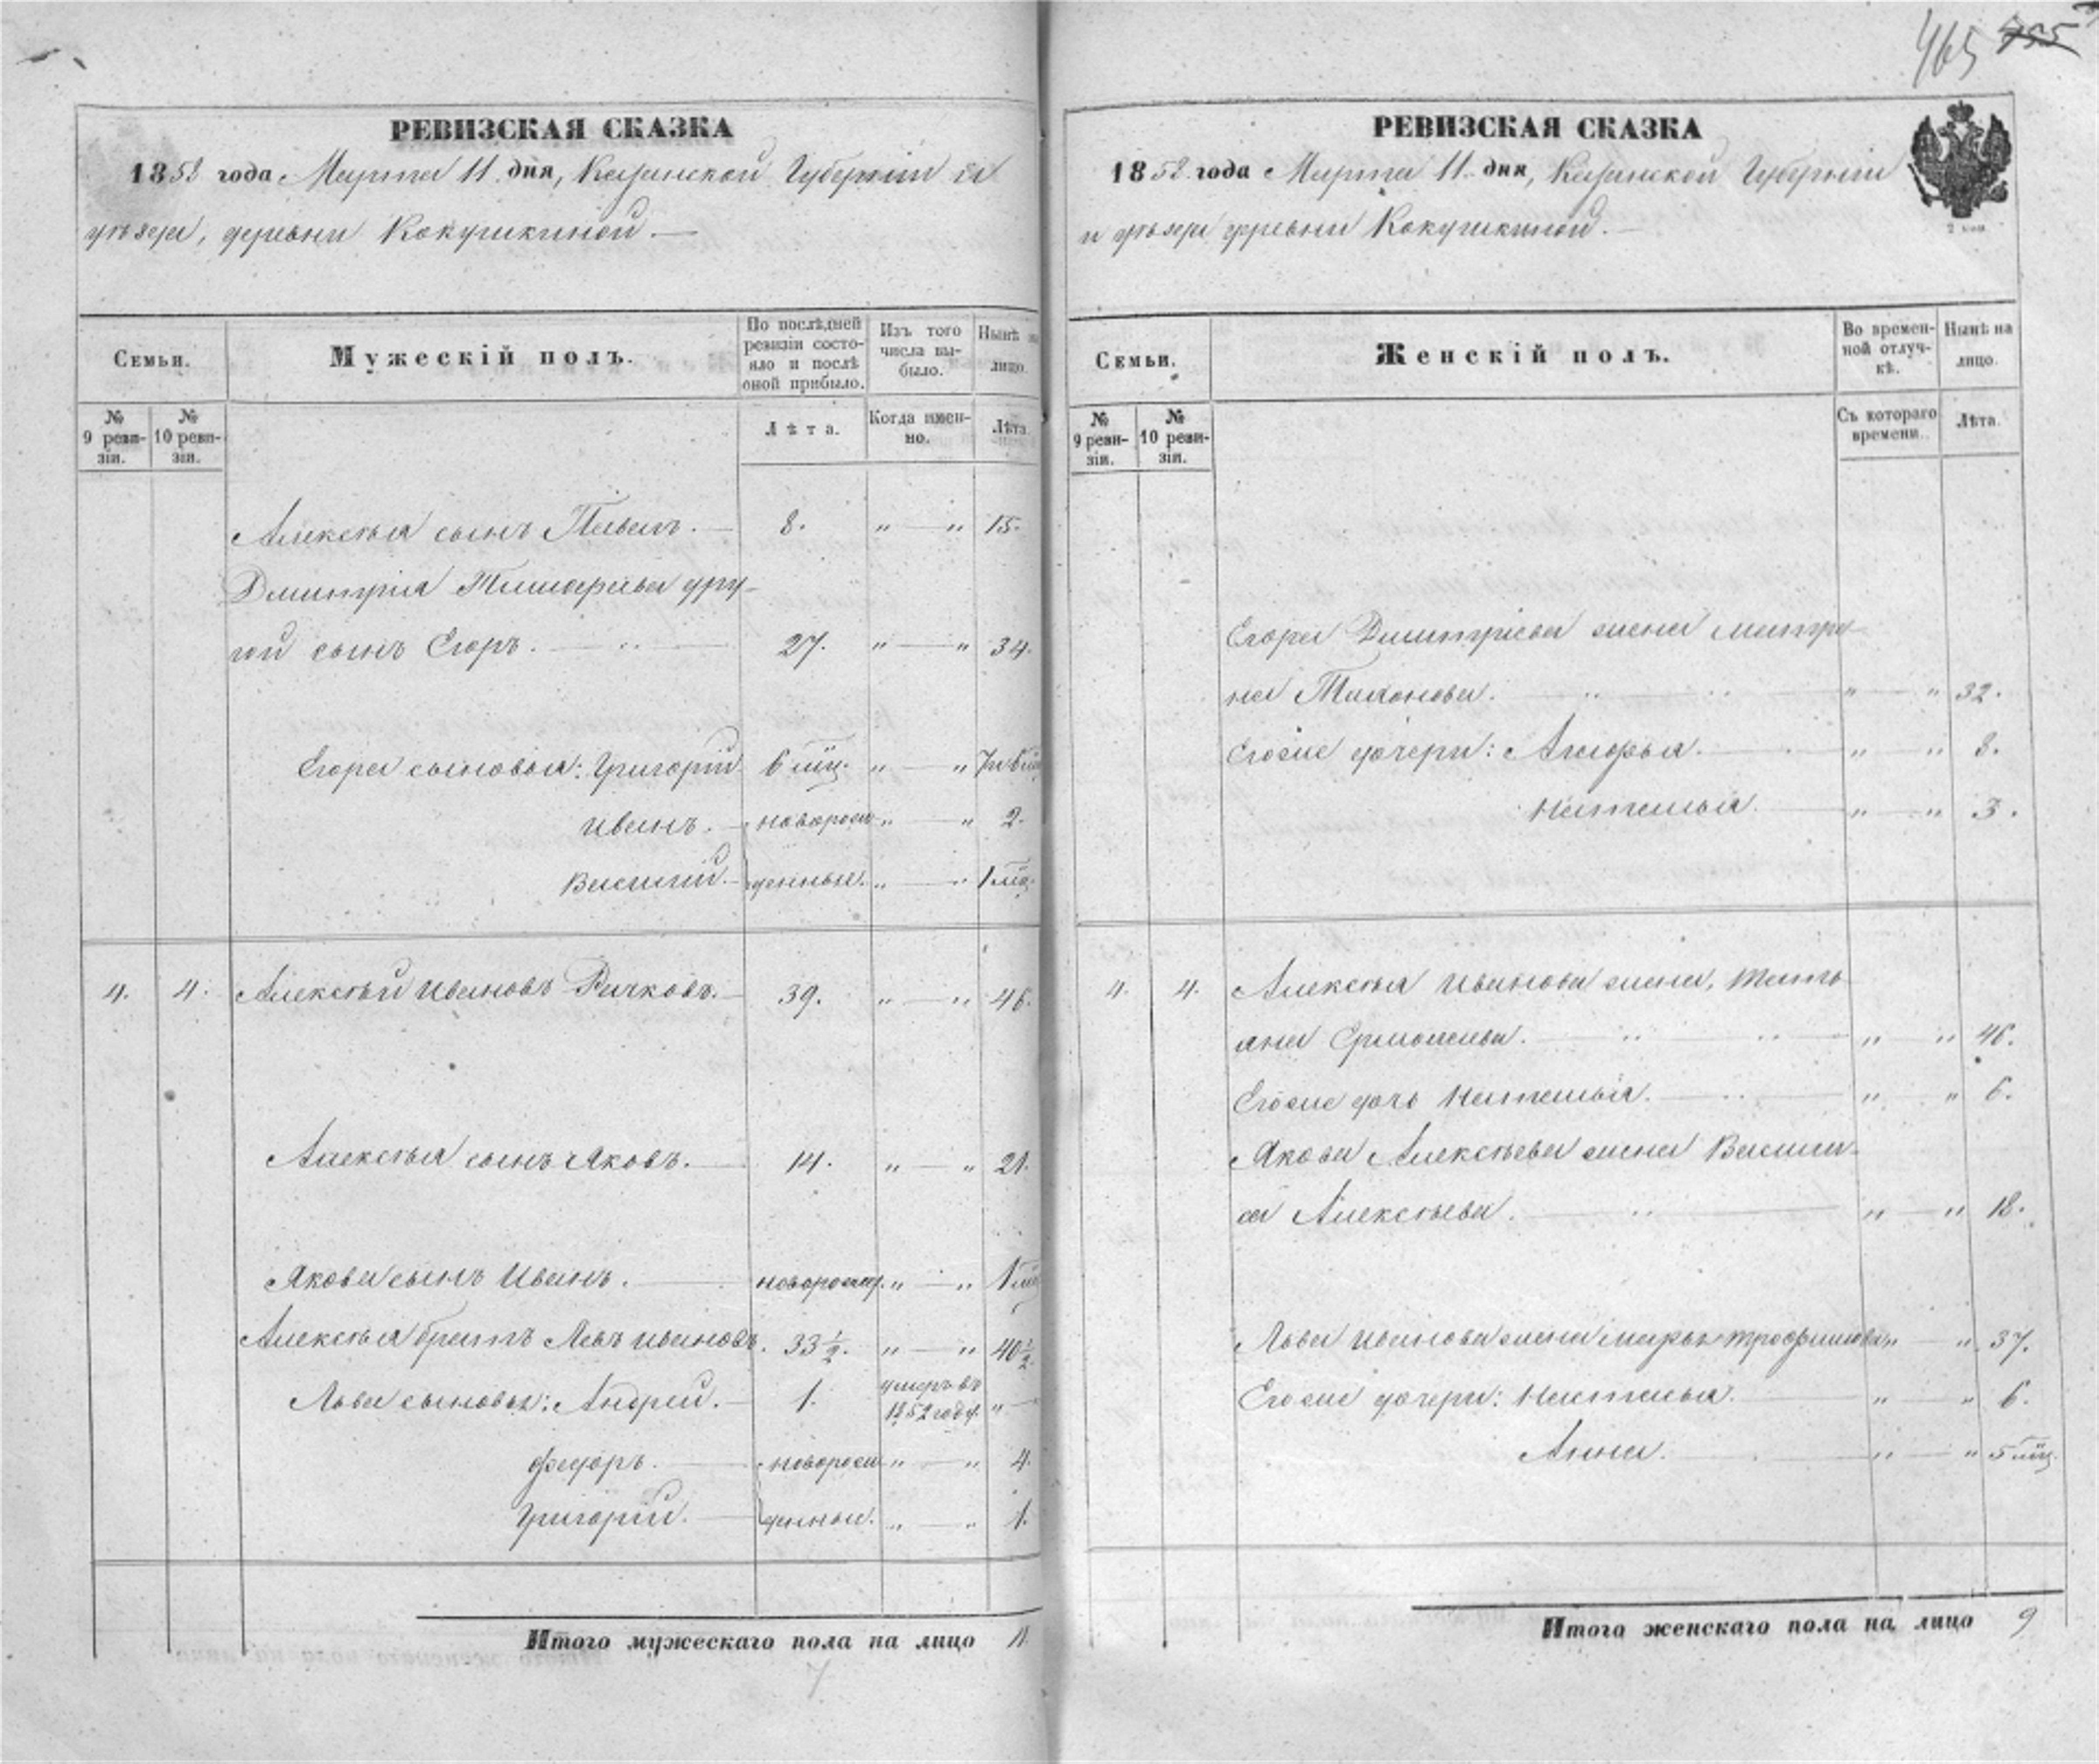 465 755
РЕВИЗСКАЯ СКАЗКА
1858 года Марта 11 дня, Казанской Губерніи и
уѣзда, деревни Кокушкиной.
Семьи.
Мужескій полъ.
По послѣдней ревизіи состояло и послѣ оной прибыло.
Изъ того числа выбыло.
Нынѣ на лицо.
№ 9 ревизіи.
№ 10 ревизіи.
Лѣта.
Когда именно.
Лѣта.
Алексѣя сынъ Павелъ. — 8. " — " 15.
Дмитрія Тимофеева дру-
гой сынъ Егоръ. — 27. " — " 34.
Егора сыновья: Григорій 6 мц. " — " 7 и 6 мц
Иванъ. — новорож " — " 2.
Василій. — денные. " — " 1 мц.
4. 4. Алексѣй Ивановъ Рычковъ. — 39. " — " 46.
Алексѣя сынъ Яковъ. — 14. " — " 21.
Якова сынъ Иванъ. — новорожд. " — " 1 мц
Алексѣя братъ Левъ Ивановъ. 33 1/2. " — " 40 1/2.
Льва сыновья: Андрей. — 1. умеръ въ 1852 году. " —
Федоръ. — новорож " — " 4.
Григорій. — денные. " — " 1.
Итого мужескаго пола на лицо 11.
7
РЕВИЗСКАЯ СКАЗКА
1858 года Марта 11 дня, Казанской Губерніи
и уѣзда деревни Кокушкиной. —
2 коп
Семьи.
Женскій полъ.
Во временной отлучкѣ.
Нынѣ на лицо.
№ 9 ревизіи.
№ 10 ревизіи.
Съ котораго времени.
Лѣта.
Егора Дмитріева жена Матре-
на Тихонова. — " — " 32.
Егоже дочери: Агафья. — " " 8.
Наталья. — " — " 3.
4. 4. Алексѣя Иванова жена, Тать-
яна Ермолаева. — " " 46.
Егоже дочь Наталья. — " " 6.
Якова Алексѣева жена Васили-
са Алексѣева. — " — " 18.
Льва Иванова жена Марья Трофимова " — " 37.
Егоже дочери: Наталья. — " — " 6.
Анна. — " — " 5 мц.
Итого женскаго пола на лицо 9